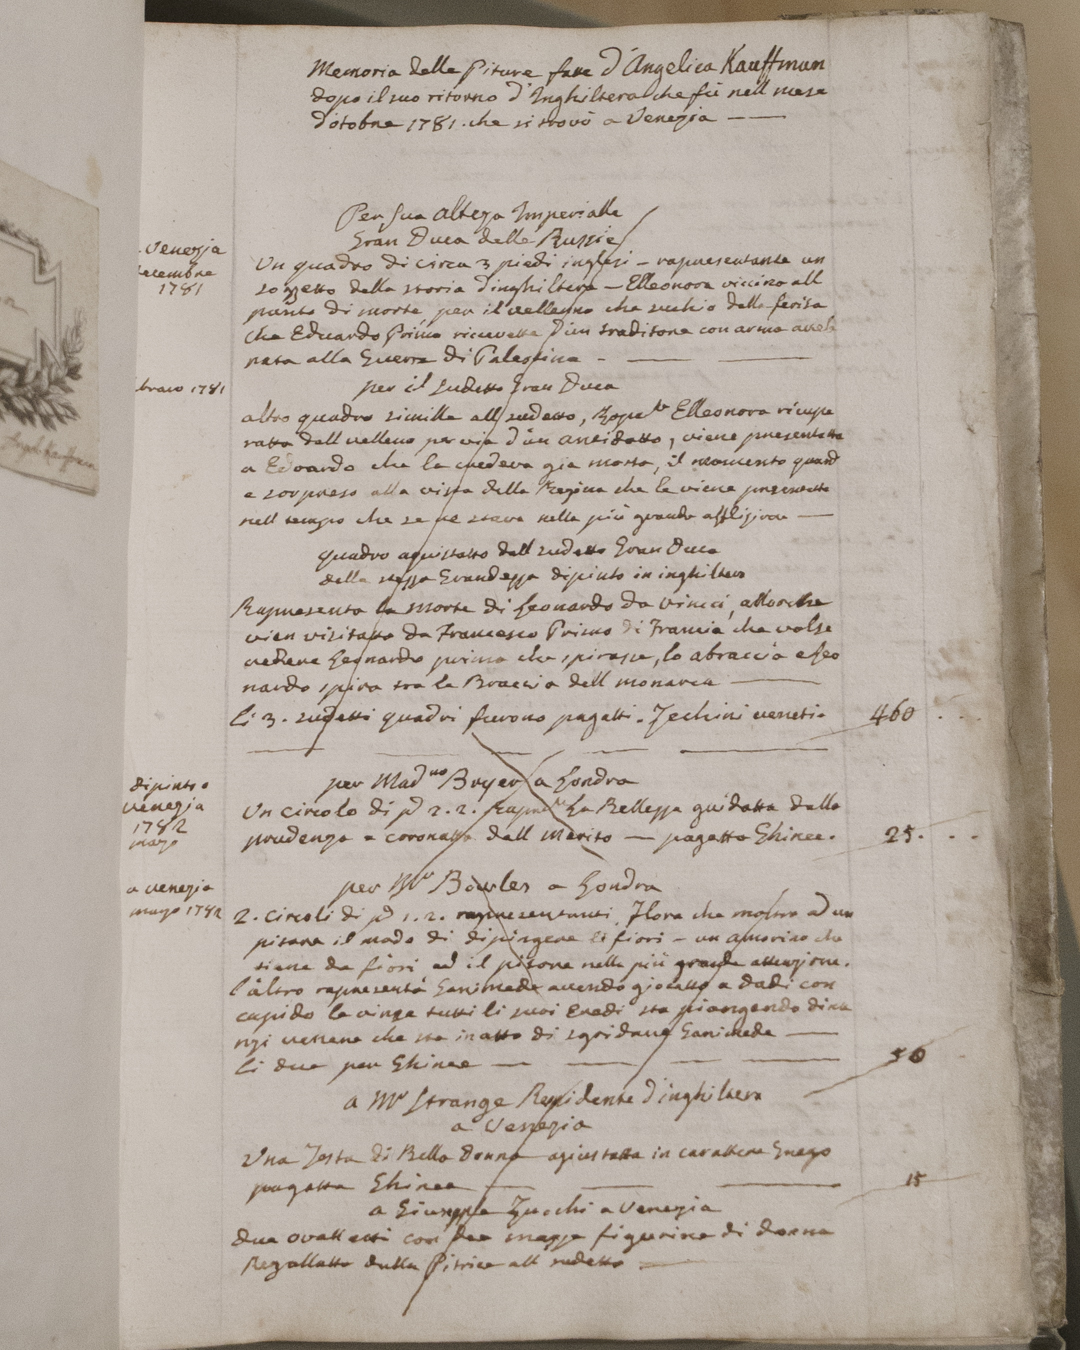 Memoria delle Piture fatte d'Angelica Kauffman
dopo il suo ritorno d'Inghilterra che fù nell mese
d'otobre 1781. che si trovò a Venezia
Per sua altezza Imperialle
Gran Duca delle Russie
Venezia
decembre
1781
Un quadro di circa 3 piedi inglesi – rapresentante un
sogetto della storia d'inghilterra – Elleonora viccino all
punto di morte per il velleno che suchiò della ferita
che Eduardo Primo ricevette d'un traditore con arma avele
nata alla Guerra di Palestina
braro 1781
per il sudetto Gran Duca
altro quadro simille all sudetto, Elleonora ricupe
ratta dall velleno per via d'un antidotto, viene presentatta
a Edoardo che la credeva gia morta, il momento quand
e sorpreso alla vista della Regina che le viene presentatta
nell tempo che se ne stava nella più grande afflizione
quadro aquistatto dall sudetto Gran Duca
della stessa Grandezza dipinto in inghilterra
Rapresenta la morte di Leonardo da Vincci, allorche
vien visitato da Francesco Primo di Francia che volse
vedere Leonardo prima che spirasse, lo abraccia e Leo
nardo spira tra le Braccia dell monarca
li 3. sudetti quadri furono pagatti. Zechini veneti. 460
dipinto a
Venezia
1782
marzo
per Mad.no Bryer a Londra
Un circolo di p.d 2. 2. Rapre.te La Bellezza guidatta dalla
prudenza e coronatta dall Merito — pagatto Ghinee. 25.
a Venezia
marzo 1782
per Mr Bowles a Londra
2. circoli di p.d 1. 2. rapresentanti, Flora che mostra ad un
pitore il modo di dipingere li fiori – un amorino che
tiene de fiori ed il pitore nella più grande attenzione.
l'altro rapresenta Ganimede avendo giocatto a dadi con
cupido le vinse tutti li suoi sta piangendo dina
nzi venere che sta in atto di sgridare Ganimede
li due per Ghinee 50
a Mr Strange Residente d'inghilterra
a Venezia
Una Testa di Bella donna agiustatta in carattere Grego
pagatta Ghinee 15
a Giuseppe Zucchi a Venezia
due ovalletti con due mezze figurine di donne
Regallatto dalla Pitrice all sudetto